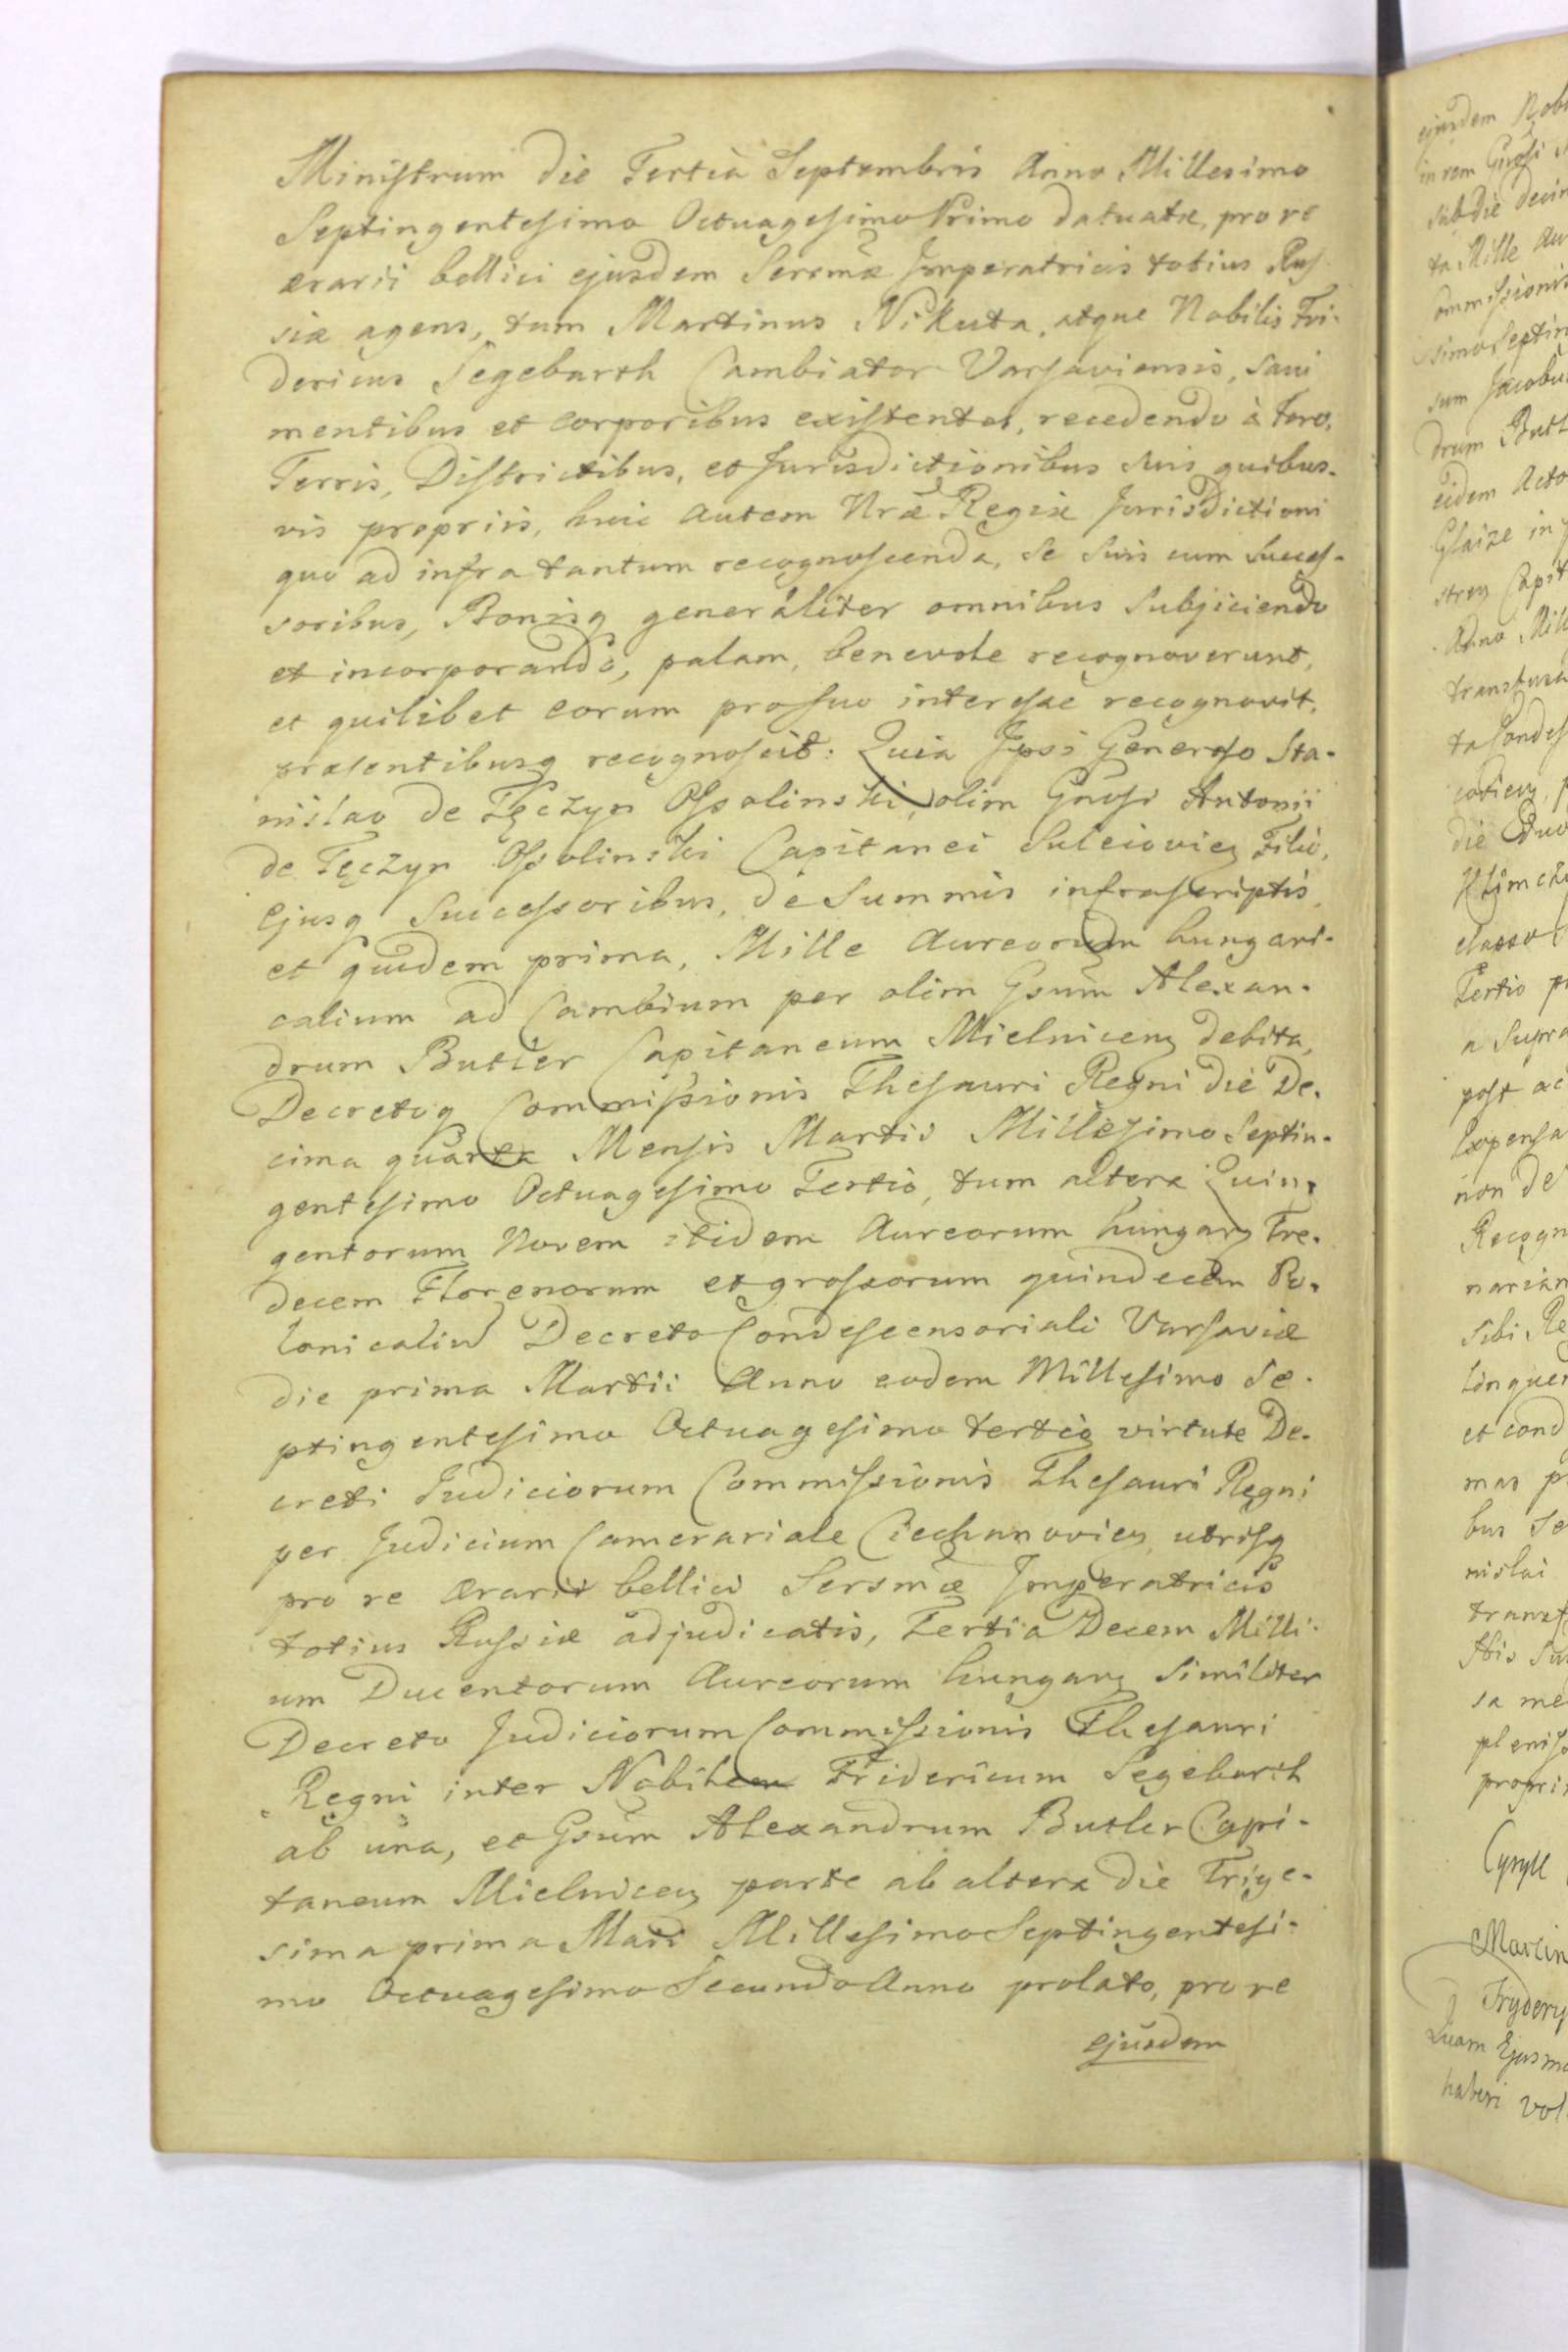 Ministrum die Tertia Septembris Anno Millesimo
Septingentesimo Octuagesimo Primo datuatæ, pro re
ærarii bellici ejusdem Sersmæ Imperatricis totius Rus
siæ agens, tum Martinus Nikuta, atque Nobilis Fri-
dericus Segebarth Cambiator Varsaviensis, sani
mentibus et corporibus existentes, recedendo à foro,
Terris, Districtibus, et Jurisdictionibus suis quibus-
vis propriis, huic autem Nræ Regiæ Jurisdictioni
quo ad infra tantum recognoscenda, se suis cum succes-
soribus, Bonisq generaliter omnibus subjiciendo
et incorporando, palam, benevole recognoverunt,
et quilibet eorum pro suo interesse recognovit,
præsentibusq recognoscit: Quia Ipsi Generoso Sta-
nislao de Tęczyn Ossolinski, olim Gnosi Antonii
de Tęczyn Ossolinski Capitanei Suleiovien Filio,
Ejusq Successoribus, de Summis infrascriptis,
et quidem prima, Mille Aureorum hungari-
calium ad Cambium per olim Gsum Alexan-
drum Butler Capitaneum Mielnicen debita,
Decretoq Commissionis Thesauri Regni die De-
cima quarta Mensis Martii Millesimo Septin-
gentesimo Octuagesimo Tertio, tum altera Quin-
gentorum Novem itidem Aureorum hungar Tre-
decem Florenorum et grossorum quindecim Po-
lonicaliu Decreto Condescensoriali Varsaviæ
die prima Martii Anno eodem Millesimo Se-
ptingentesimo Octuagesimo tertio virtute De-
creti Judiciorum Commissionis Thesauri Regni
per Judicium Camerariale Ciechanovien, utrisq
pro re ærarii bellici Sersmæ Imperatricis
totius Russiæ adjudicatis, Tertia Decem Milli-
um Ducentorum Aureorum hungar similiter
Decreto Judiciorum Commissionis Thesauri
Regni inter Nobilem Fridericum Segebarth
ab una, et Gsum Alexandrum Butler Capi-
taneum Mielnicen parte ab altera die Trige-
sima prima Maii Millesimo Septingentesi-
mo Octuagesimo Secundo Anno prolato, pro re
ejusdem
ejusdem
in rem
sub die
ta Mille
ommissionis
simo Septin
sum Jacobu
drum Butl
eidem Acto
Glaize in
Anno Mil
die
Tertio
a supra
post ac
Expensa
non de
Recogn
sibi Re
linquen
et cond
mas
bus Se
nislai
propri
Cyryll
Marcin
Frydery
Quam Ejusmo
haberi vol